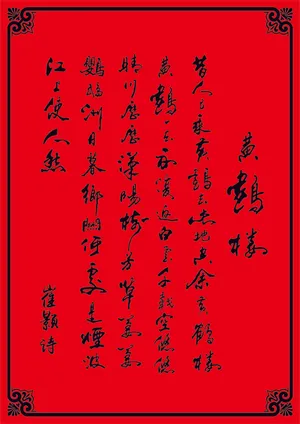 黄鶴樓
昔人已乘黄鶴去此地空余黄鶴樓
黄鶴一去不復返白雲千載空悠悠
晴川歷歷漢陽樹芳草萋萋
鸚鵡洲日暮鄉關何處是煙波
江上使人愁
崔顥詩